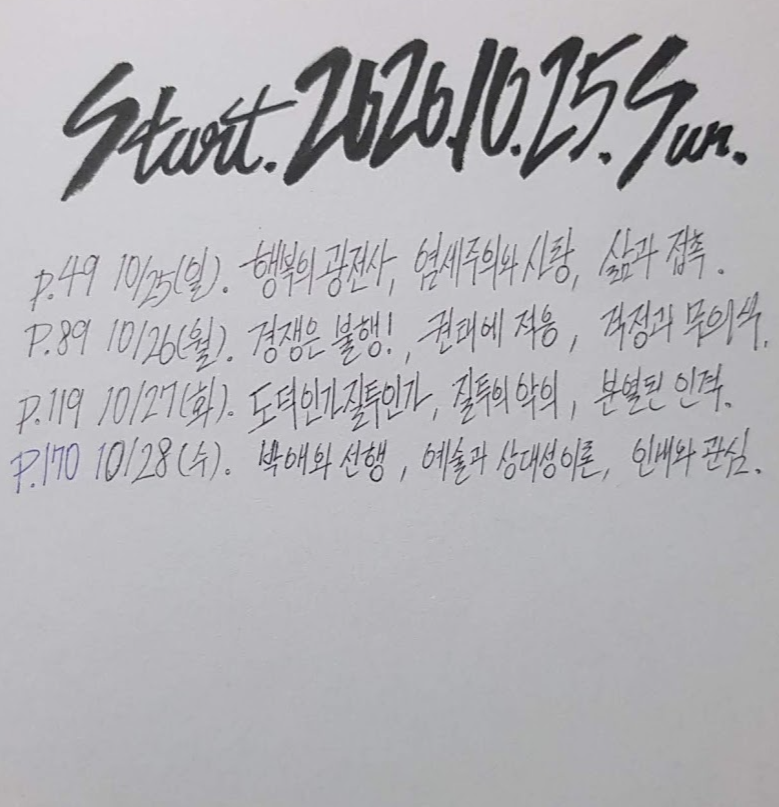 Start. 2020.10.25. Sun.
P.49 10/25(일). 행복의 광전사, 염세주의와 사랑, 삶과 접촉.
P.89 10/26(월). 경쟁은 불행!, 권태에 적응, 걱정과 무의식.
P.119 10/27(화). 도덕인가 질투인가, 질투의 악의, 분열된 인격.
P.170 10/28(수). 박애와 선행, 예술과 상대성이론, 인내와 관심.